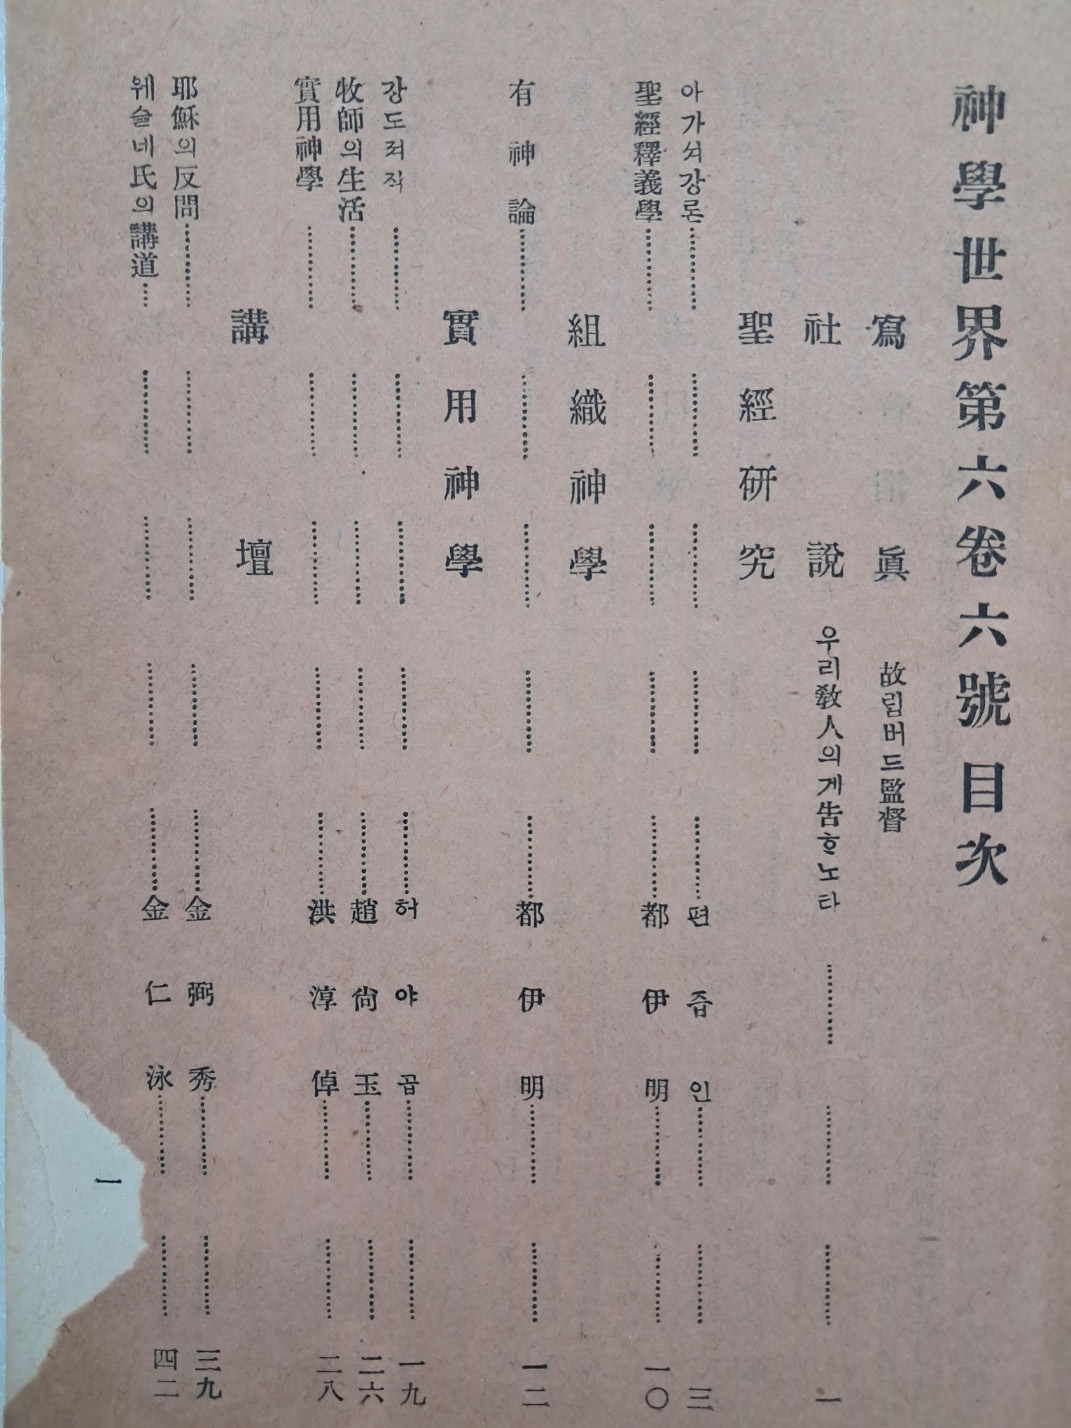 神學世界第六卷六號目次
寫眞 故림버드監督
社說 우리敎人의게告ᄒᆞ노라 一
聖經硏究
아가셔강론 편즙인 三
聖經釋義學 都伊明 一〇
組織神學
有神論 都伊明 一二
實用神學
강도져작 허야곱 一九
牧師의生活 趙尙玉 二六
實用神學 洪淳倬 二八
講壇
耶穌의反問 金弼秀 三九
웨슬네氏의講道 金仁泳 四二
一